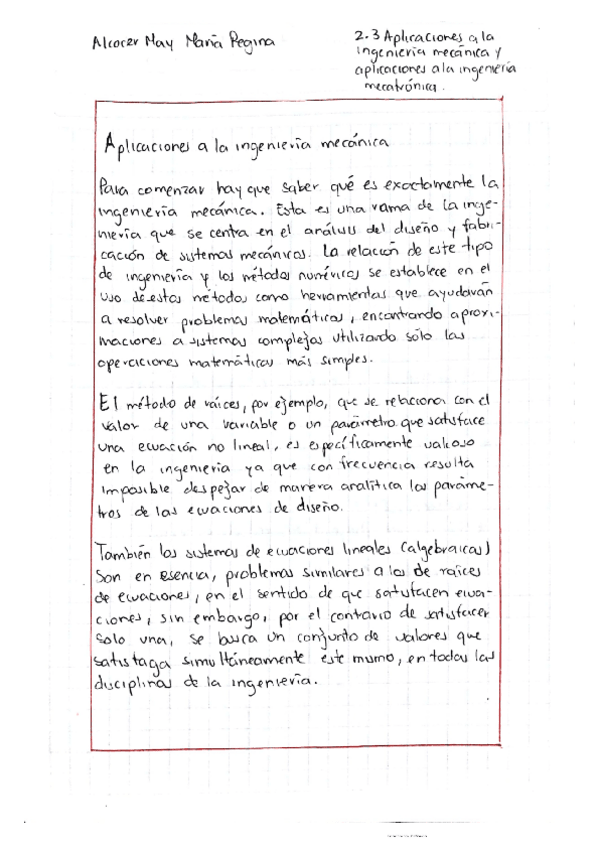 Alcocer May María Regina
2.3 Aplicaciones a la
ingeniería mecánica y
aplicaciones a la ingeniería
mecatrónica.
Aplicaciones a la ingeniería mecánica
Para comenzar hay que saber qué es exactamente la
ingeniería mecánica. Esta es una rama de la inge-
niería que se centra en el análisis del diseño y fabri-
cación de sistemas mecánicos. La relación de este tipo
de ingeniería y los métodos numéricos se establece en el
uso de estos métodos como herramientas que ayudarán
a resolver problemas matemáticos, encontrando aproxi-
maciones a sistemas complejos utilizando sólo las
operaciones matemáticas más simples.
El método de raíces, por ejemplo, que se relaciona con el
valor de una variable o un parámetro que satisface
una ecuación no lineal, es específicamente valioso
en la ingeniería ya que con frecuencia resulta
imposible despejar de manera analítica los paráme-
tros de las ecuaciones de diseño.
También los sistemas de ecuaciones lineales (algebraicas)
son en esencia, problemas similares a los de raíces
de ecuaciones, en el sentido de que satisfacen ecua-
ciones, sin embargo, por el contario de satisfacer
solo una, se busca un conjunto de valores que
satisfaga simultáneamente este mismo, en todas las
disciplinas de la ingeniería.